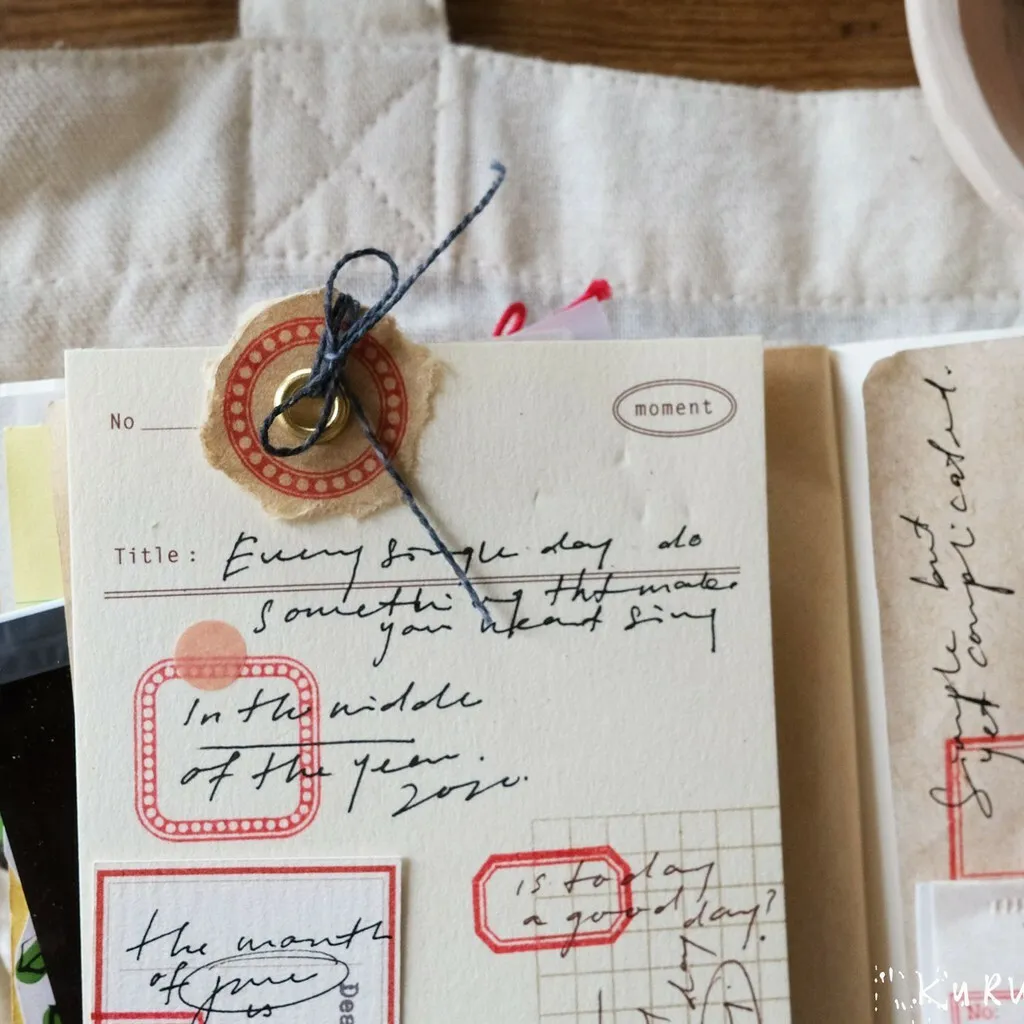 No
moment
Title: Every single day do
something tht make
you heart sing
In the middle
of the year.
2020.
is today
a good day?
the month
of june
is
Dea
day
Simple but
yet complicated.
KURU
No: